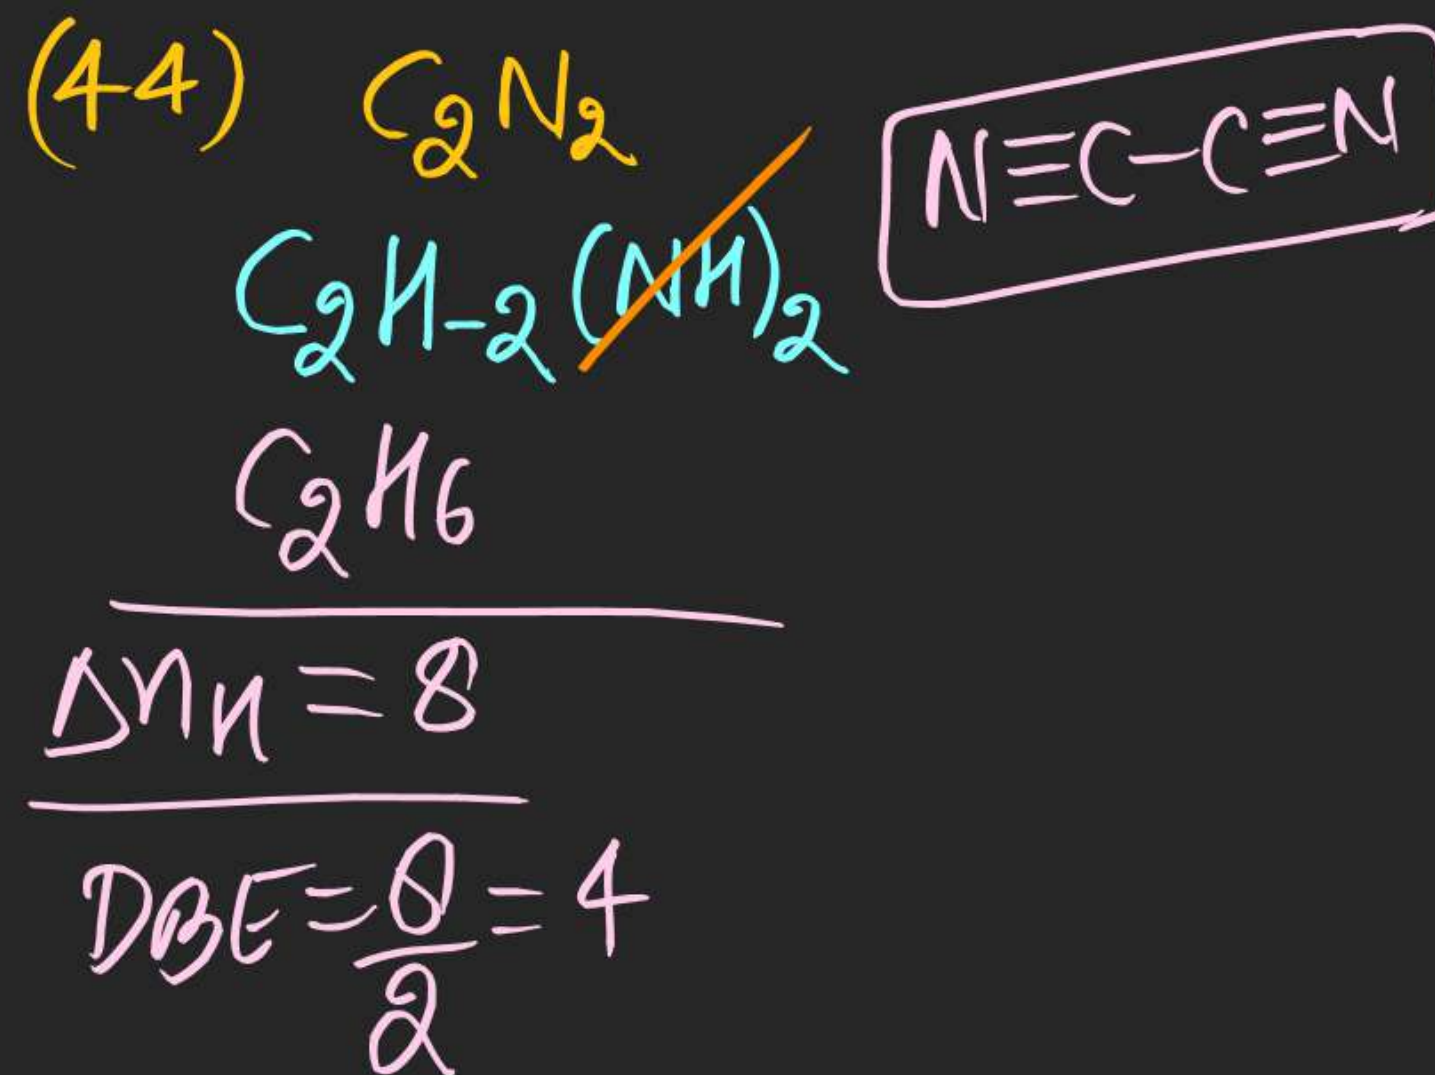 (44) C₂N₂
N≡C-C≡N
C₂H₋₂(NH)₂
C₂H₆
Δn_H = 8
DBE = 8/2 = 4